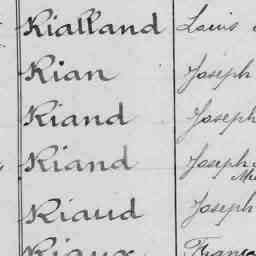 Rialland Louis
Rian Joseph
Riand Joseph
Riand Joseph
Riaud Joseph
Riaux